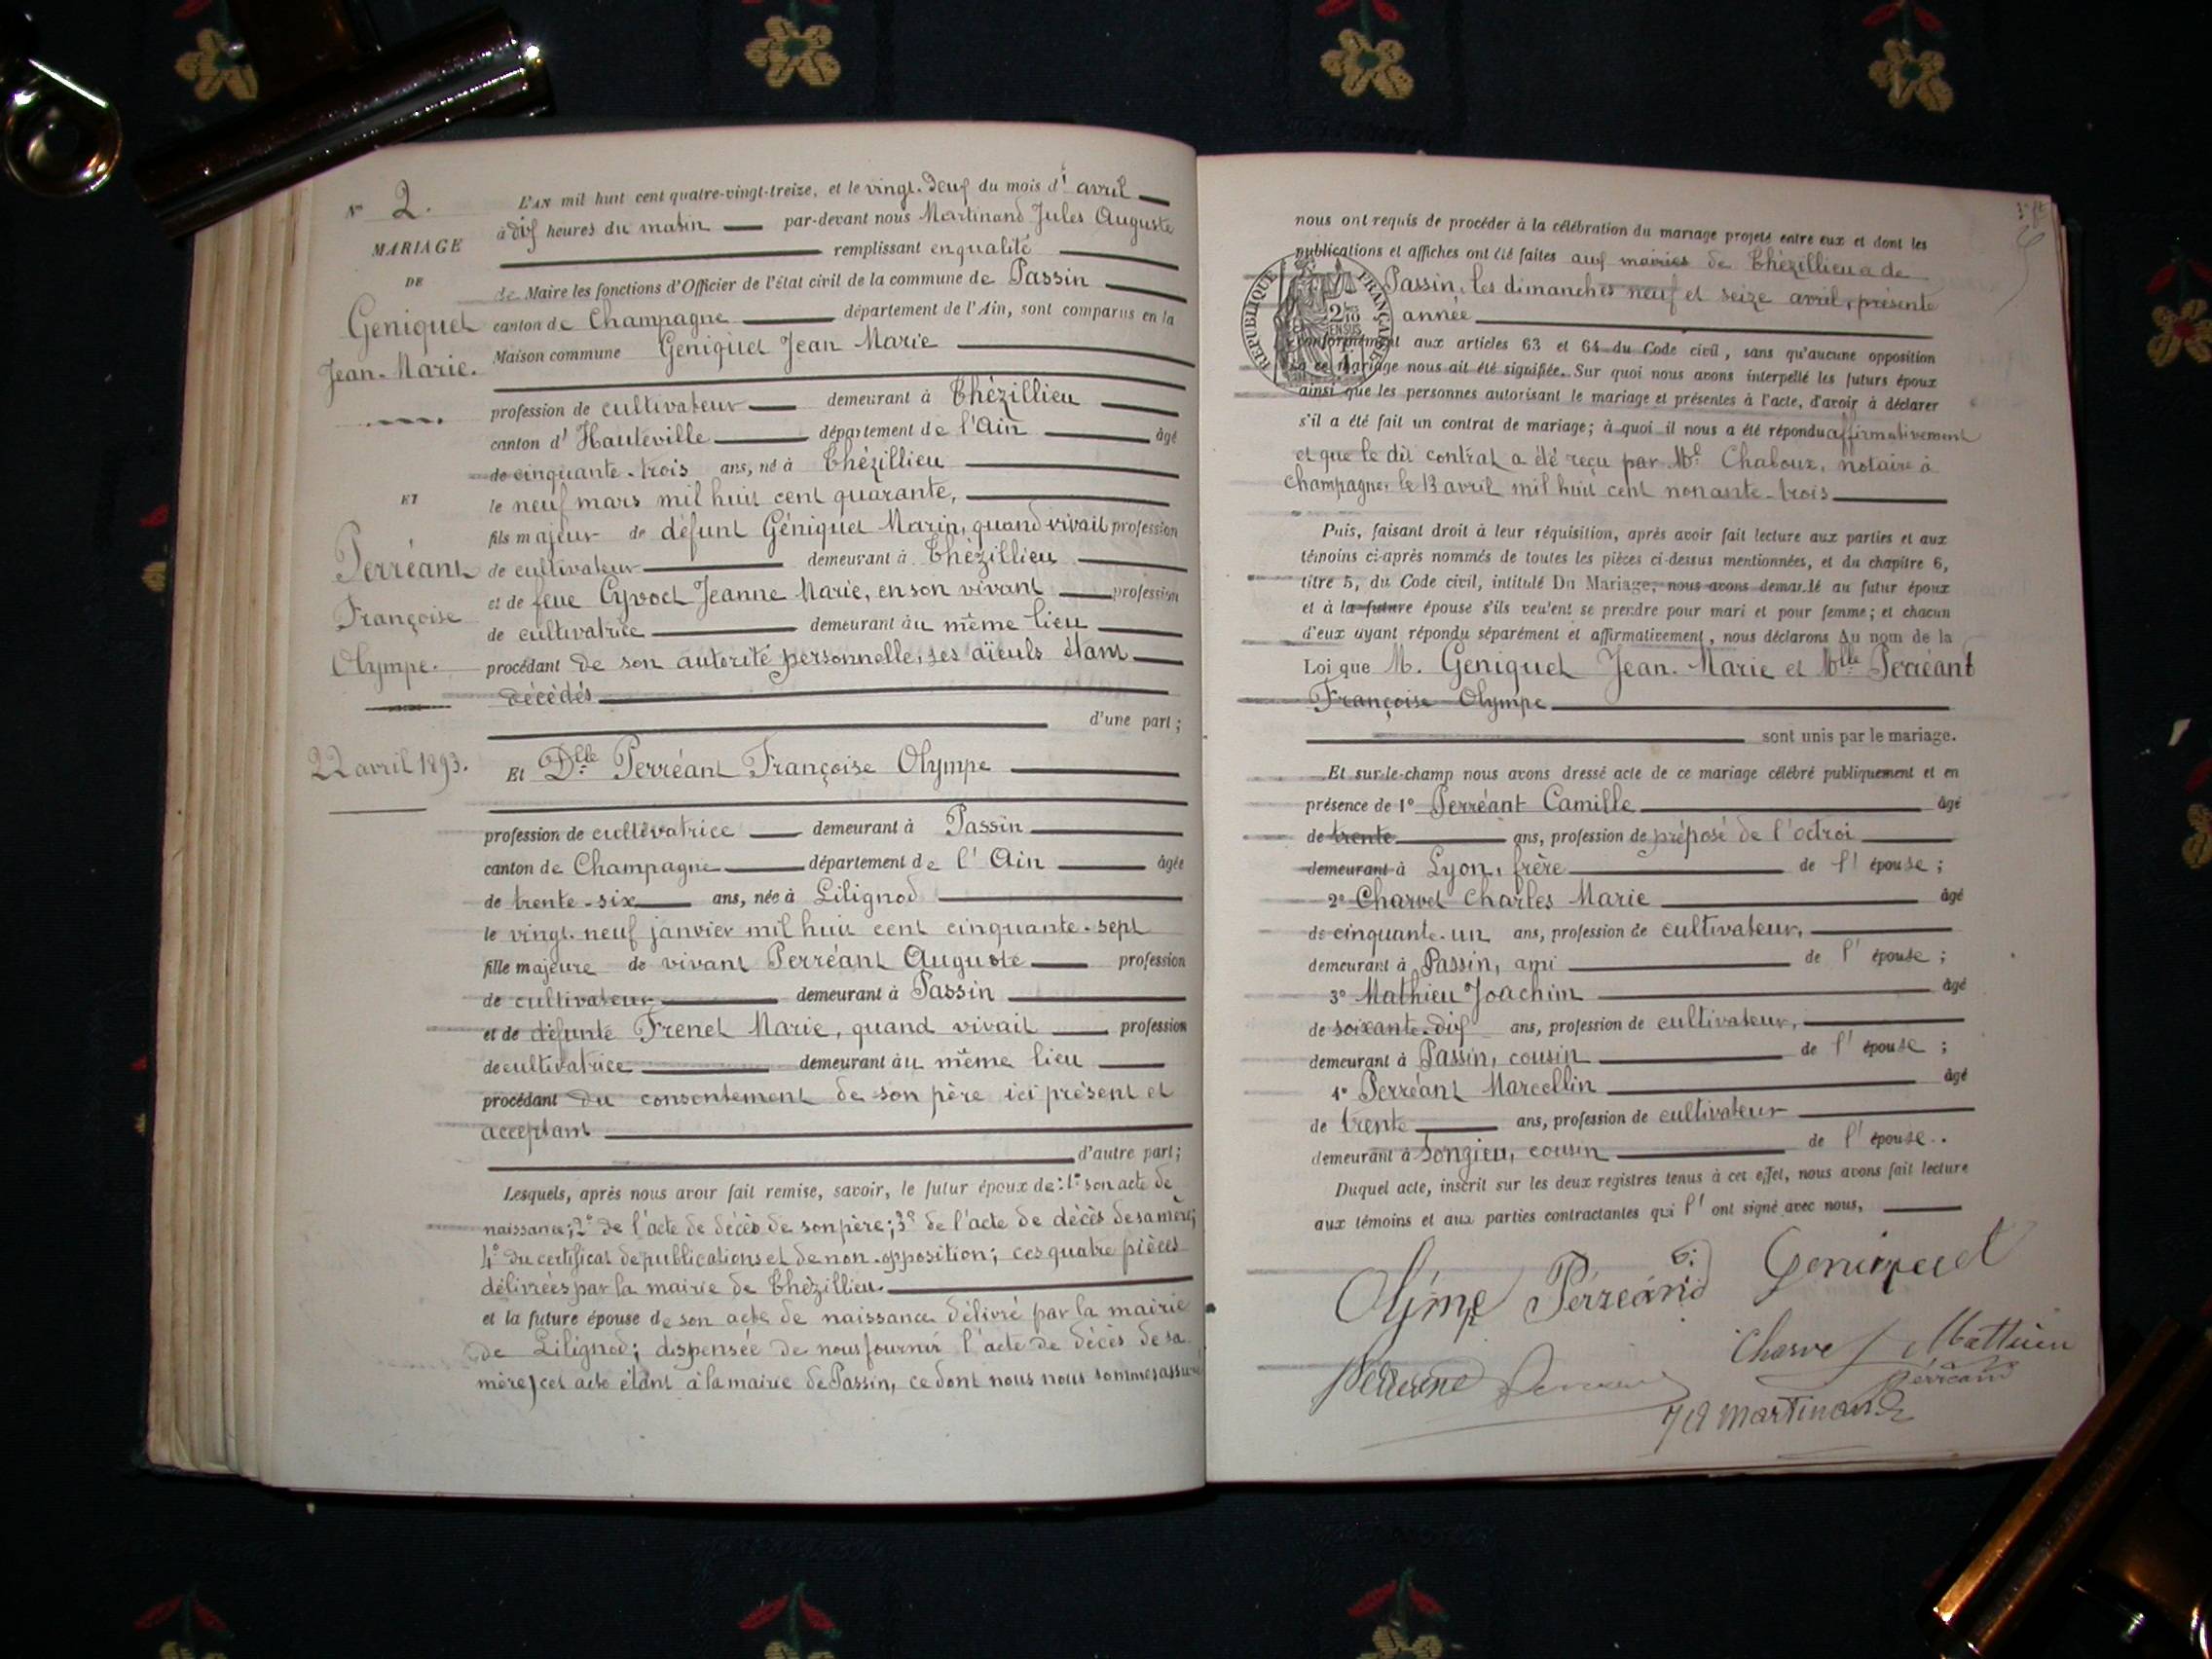 N° 2.
MARIAGE
DE
Geniquet
Jean-Marie.
ET
Perréant
Françoise
Olympe.
22 avril 1893.
L'AN mil huit cent quatre-vingt-treize, et le vingt-deux du mois d'avril
à dix heures du matin par-devant nous Martinand Jules Auguste
remplissant en qualité
de Maire les fonctions d'Officier de l'état civil de la commune de Passin
canton de Champagne département de l'Ain, sont comparus en la
Maison commune Geniquet Jean Marie
profession de cultivateur demeurant à Thézillieu
canton d'Hauteville département de l'Ain âgé
de cinquante-trois ans, né à Thézillieu
le neuf mars mil huit cent quarante,
fils majeur de défunt Géniquet Marin, quand vivait profession
de cultivateur demeurant à Thézillieu
et de feue Cyvoct Jeanne Marie, en son vivant profession
de cultivatrice demeurant au même lieu
procédant de son autorité personnelle, ses aïeuls étant
décédés
d'une part;
Et Dlle Perréant Françoise Olympe
profession de cultivatrice demeurant à Passin
canton de Champagne département de l'Ain âgée
de trente-six ans, née à Lilignod
le vingt-neuf janvier mil huit cent cinquante-sept
fille majeure de vivant Perréant Auguste profession
de cultivateur demeurant à Passin
et de défunte Frenet Marie, quand vivait profession
de cultivatrice demeurant au même lieu
procédant du consentement de son père ici présent et
acceptant
d'autre part;
Lesquels, après nous avoir fait remise, savoir, le futur époux de: 1° son acte de
naissance; 2° de l'acte de décès de son père; 3° de l'acte de décès de sa mère;
4° du certificat de publications et de non-opposition; ces quatre pièces
délivrées par la mairie de Thézillieu.
et la future épouse de son acte de naissance délivré par la mairie
de Lilignod; dispensée de nous fournir l'acte de décès de sa
mère, cet acte étant à la mairie de Passin, ce dont nous nous sommes assuré
nous ont requis de procéder à la célébration du mariage projeté entre eux et dont les
publications et affiches ont été faites aux mairies de Thézillieu a de
Passin, les dimanches neuf et seize avril, présente
année
RÉPUBLIQUE FRANÇAISE
2/10 EN SUS
conformément aux articles 63 et 64 du Code civil, sans qu'aucune opposition
à ce mariage nous ait été signifiée. Sur quoi nous avons interpellé les futurs époux
ainsi que les personnes autorisant le mariage et présentes à l'acte, d'avoir à déclarer
s'il a été fait un contrat de mariage; à quoi il nous a été répondu affirmativement
et que le dit contrat a été reçu par Me Chaboux, notaire à
Champagne, le 13 avril mil huit cent nonante-trois
Puis, faisant droit à leur réquisition, après avoir fait lecture aux parties et aux
témoins ci-après nommés de toutes les pièces ci-dessus mentionnées, et du chapitre 6,
titre 5, du Code civil, intitulé Du Mariage, nous avons demandé au futur époux
et à la future épouse s'ils veulent se prendre pour mari et pour femme; et chacun
d'eux ayant répondu séparément et affirmativement, nous déclarons Au nom de la
Loi que M. Geniquet Jean-Marie et Mlle Perréant
Françoise Olympe
sont unis par le mariage.
Et sur-le-champ nous avons dressé acte de ce mariage célébré publiquement et en
présence de 1° Perréant Camille âgé
de trente ans, profession de préposé de l'octroi
demeurant à Lyon, frère de l'épouse;
2° Charvet Charles Marie âgé
de cinquante-un ans, profession de cultivateur,
demeurant à Passin, ami de l'épouse;
3° Mathieu Joachim âgé
de soixante-dix ans, profession de cultivateur,
demeurant à Passin, cousin de l'épouse;
4° Perréant Marcellin âgé
de trente ans, profession de cultivateur
demeurant à Songieu, cousin de l'épouse.
Duquel acte, inscrit sur les deux registres tenus à cet effet, nous avons fait lecture
aux témoins et aux parties contractantes qui l'ont signé avec nous,
Olimpe Perréand Geniquet
Charvet Mathieu
Perréand
J A Martinand